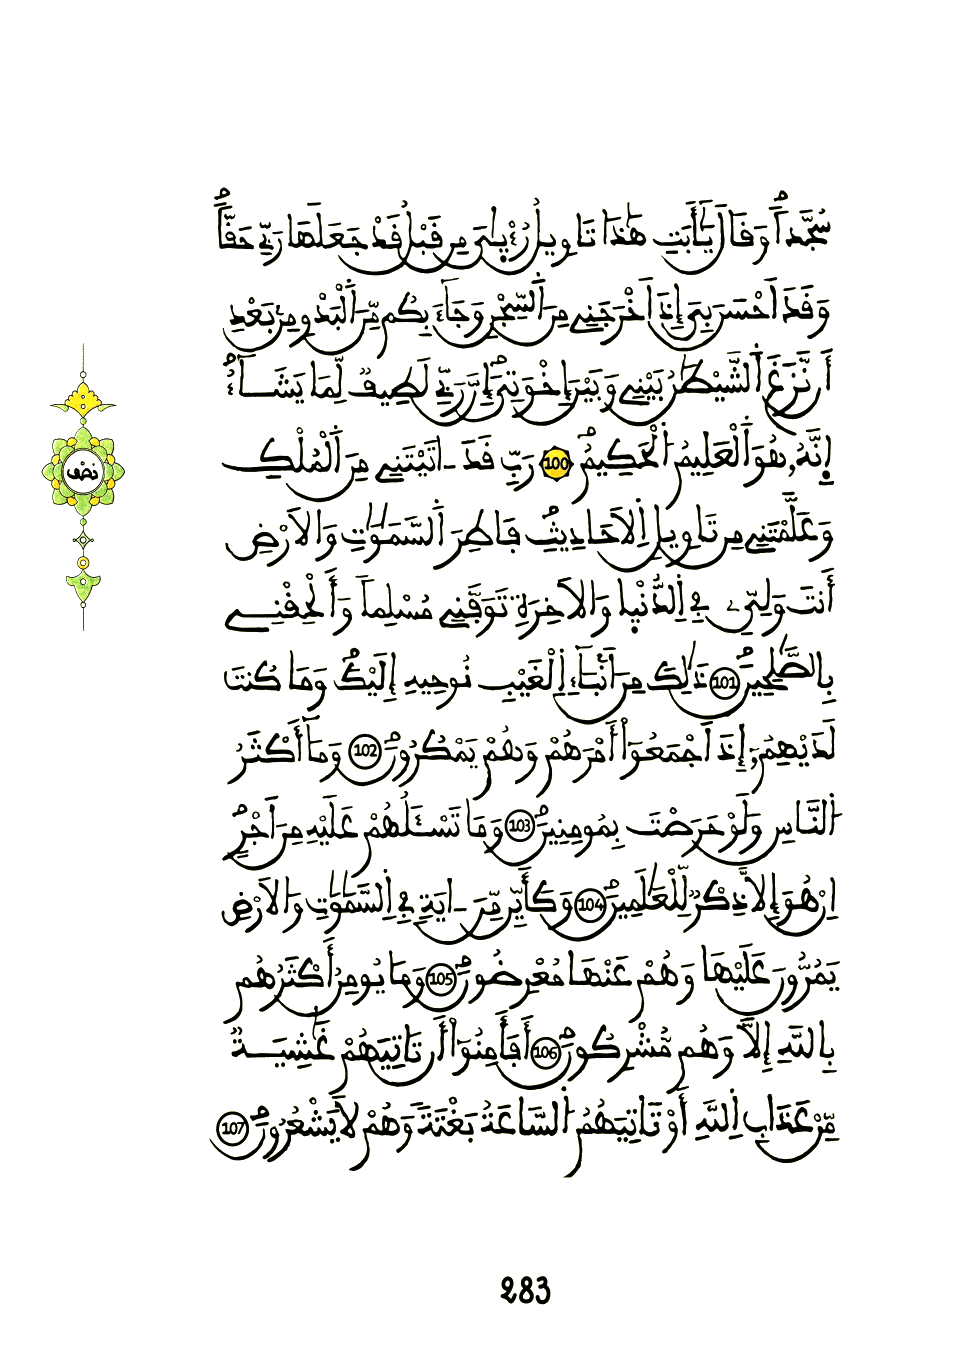 سُجَّداٗۖ وَقَالَ يَٰٓأَبَتِ هَٰذَا تَاوِيلُ رُءْيَٰيَ مِن قَبْلُ قَدْ جَعَلَهَا رَبِّے حَقّاٗۖ
وَقَدَ اَحْسَنَ بِيَ إِذَ اَخْرَجَنِے مِنَ اَ۬لسِّجْنِ وَجَآءَ بِكُم مِّنَ اَ۬لْبَدْوِ مِنۢ بَعْدِ
أَن نَّزَغَ اَ۬لشَّيْطَٰنُ بَيْنِے وَبَيْنَ إِخْوَتِيَۖ إِنَّ رَبِّے لَطِيفٞ لِّمَا يَشَآءُۖ
اِنَّهُۥ هُوَ اَ۬لْعَلِيمُ اُ۬لْحَكِيمُۖ 100 رَبِّ قَدَ اٰتَيْتَنِے مِنَ اَ۬لْمُلْكِ
وَعَلَّمْتَنِے مِن تَاوِيلِ اِ۬لَاحَادِيثِۖ فَاطِرَ اَ۬لسَّمَٰوَٰتِ وَالَارْضِ
أَنتَ وَلِيِّے فِے اِ۬لدُّنْي۪ا وَالَاخِرَةِۖ تَوَفَّنِے مُسْلِماٗ وَأَلْحِقْنِے
بِالصَّٰلِحِينَۖ 101 ذَٰلِكَ مِنَ اَنۢبَآءِ اِ۬لْغَيْبِ نُوحِيهِ إِلَيْكَۖ وَمَا كُنتَ
لَدَيْهِمُۥٓ إِذَ اَجْمَعُوٓاْ أَمْرَهُمْ وَهُمْ يَمْكُرُونَۖ 102 وَمَآ أَكْثَرُ
اُ۬لنَّاسِ وَلَوْ حَرَصْتَ بِمُومِنِينَۖ 103 وَمَا تَسْـَٔلُهُمْ عَلَيْهِ مِنَ اَجْرٍۖ
اِنْ هُوَ إِلَّا ذِكْرٞ لِّلْعَٰلَمِينَۖ 104 وَكَأَيِّن مِّنَ اٰيَةٖ فِے اِ۬لسَّمَٰوَٰتِ وَالَارْضِ
يَمُرُّونَ عَلَيْهَا وَهُمْ عَنْهَا مُعْرِضُونَۖ 105 وَمَا يُومِنُ أَكْثَرُهُم
بِاللَّهِ إِلَّا وَهُم مُّشْرِكُونَۖ 106 أَفَأَمِنُوٓاْ أَن تَاتِيَهُمْ غَٰشِيَةٞ
مِّنْ عَذَابِ اِ۬للَّهِ أَوْ تَاتِيَهُمُ اُ۬لسَّاعَةُ بَغْتَةٗ وَهُمْ لَا يَشْعُرُونَۖ 107
نصف
283